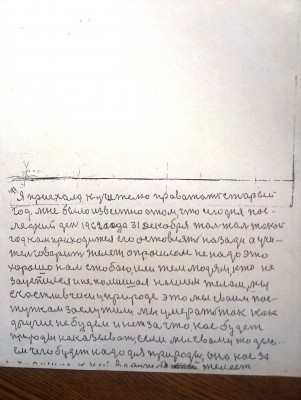 Я приехала к учителю проватать старый
год. мне было известно о том, что сегодня пос-
ледний ден 1962 года 31 декабря жал жал такой
год нам приходится его оставлять назади а учи-
тел говорит желет о прошлом не надо это
хорошо нам с тобою или тем людям кто не
зацепился и не помишал нашим телам, мы
счасливчеки, у природе это мы своим пос-
тупкам заслужили мы умерать так как
другие не будем и не за что, нас будет
природы наказывать если мы своими то дел
ем чего будет надо для природы, она нас за